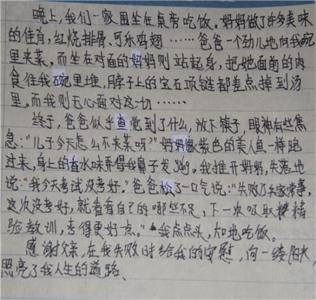 晚上，我们一家围坐在桌旁吃饭。妈妈做了许多美味
的佳肴，红烧排骨、可乐鸡翅……爸爸一个劲儿地向我碗
里夹菜，而坐在对面的妈妈则站起身，把她面前的肉
食往我碗里堆，脖子上的宝石项链都差点掉到汤
里，而我则无心面对这一切……
终于，爸爸似乎查觉到了什么，放下筷子，眼神有些焦
急：“儿子今天怎么不夹菜呀？”妈妈像紫色的美人鱼一样跑
过来，身上的香水味弄得我鼻子发。我推开妈妈，失落地
说：“我今天考试没考好。”爸爸松了口气说：“失败乃兵家常事，
这次没考好，就看看自己的哪些不足，下一次吸取经
验教训，考得更好点。”我点点头，却吃着饭。
感谢父亲，在我失败时给我的安慰，向一缕阳光
照亮了我人生的道路。